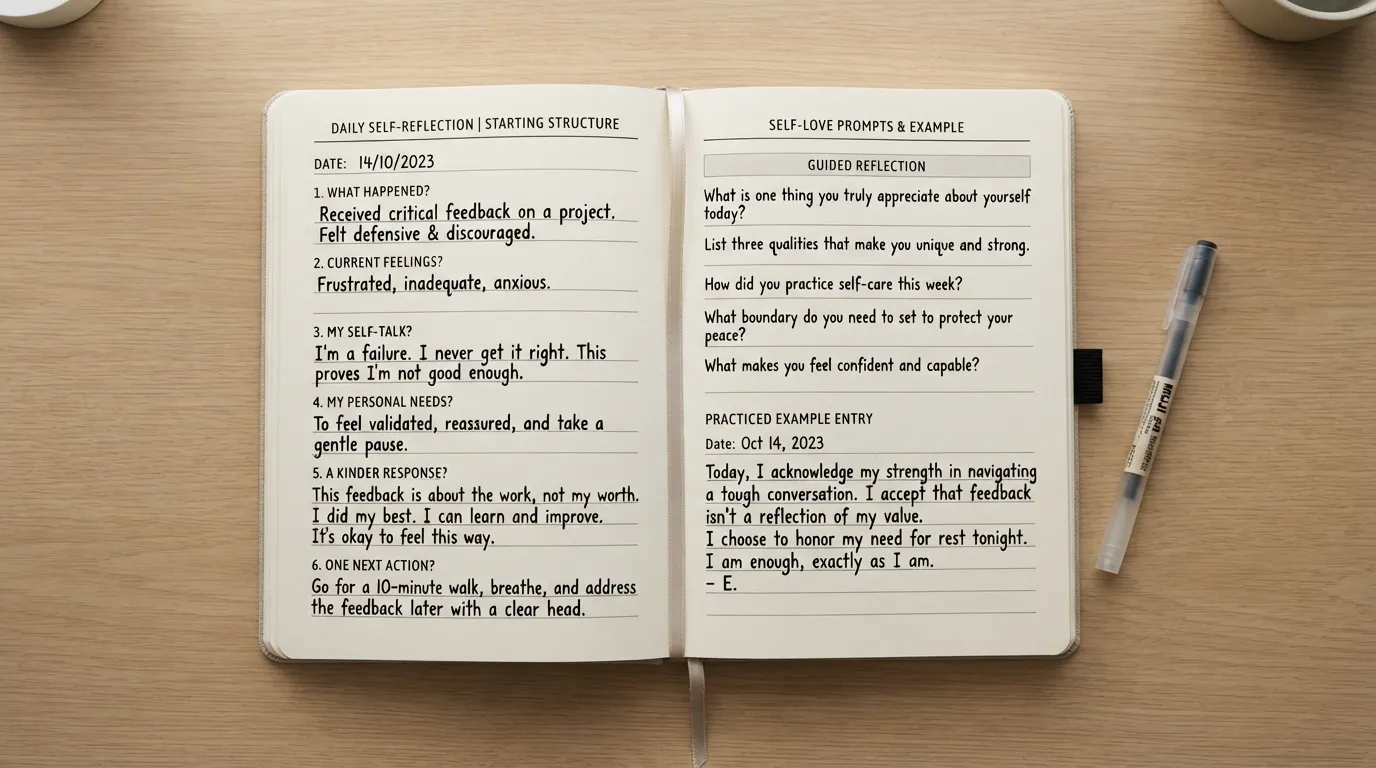 DAILY SELF-REFLECTION | STARTING STRUCTURE
DATE: 14/10/2023
1. WHAT HAPPENED?
Received critical feedback on a project.
Felt defensive & discouraged.
2. CURRENT FEELINGS?
Frustrated, inadequate, anxious.
3. MY SELF-TALK?
I'm a failure. I never get it right. This
proves I'm not good enough.
4. MY PERSONAL NEEDS?
To feel validated, reassured, and take a
gentle pause.
5. A KINDER RESPONSE?
This feedback is about the work, not my worth.
I did my best. I can learn and improve.
It's okay to feel this way.
6. ONE NEXT ACTION?
Go for a 10-minute walk, breathe, and address
the feedback later with a clear head.
SELF-LOVE PROMPTS & EXAMPLE
GUIDED REFLECTION
What is one thing you truly appreciate about yourself
today?
List three qualities that make you unique and strong.
How did you practice self-care this week?
What boundary do you need to set to protect your
peace?
What makes you feel confident and capable?
PRACTICED EXAMPLE ENTRY
Date: Oct 14, 2023
Today, I acknowledge my strength in navigating
a tough conversation. I accept that feedback
isn't a reflection of my value.
I choose to honor my need for rest tonight.
I am enough, exactly as I am.
– E.